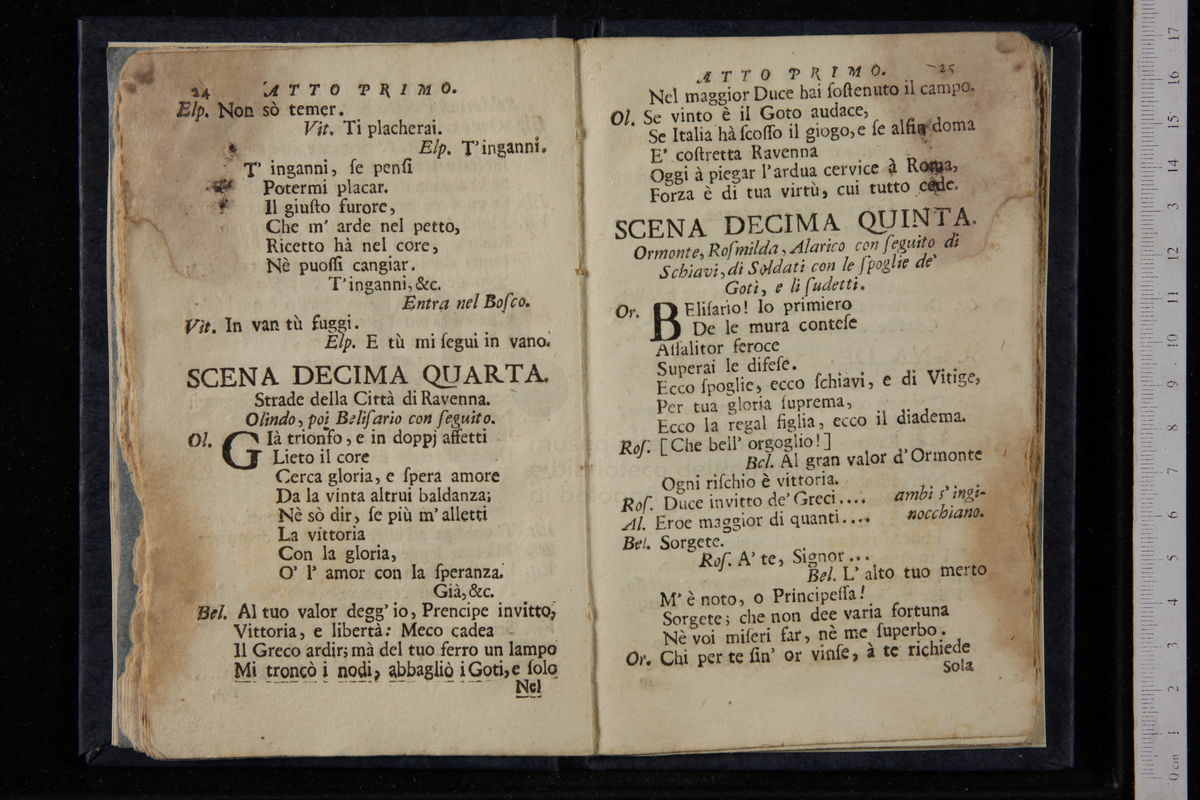 24 ATTO PRIMO.
Elp. Non sò temer.
Vit. Ti placherai.
Elp. T'inganni.
T' inganni, ſe penſi
Potermi placar.
Il giuſto furore,
Che m' arde nel petto,
Ricetto hà nel core,
Nè puoſſi cangiar.
T'inganni, &c.
Entra nel Boſco.
Vit. In van tù fuggi.
Elp. E tù mi ſegui in vano.
SCENA DECIMA QUARTA.
Strade della Città di Ravenna.
Olindo, poi Beliſario con ſeguito.
Ol. GIà trionfo, e in doppj affetti
Lieto il core
Cerca gloria, e ſpera amore
Da la vinta altrui baldanza;
Nè sò dir, ſe più m' alletti
La vittoria
Con la gloria,
O' l' amor con la ſperanza.
Già, &c.
Bel. Al tuo valor degg' io, Prencipe invitto,
Vittoria, e libertà: Meco cadea
Il Greco ardir; mà del tuo ferro un lampo
Mi troncò i nodi, abbagliò i Goti, e ſolo
Nel
ATTO PRIMO. 25
Nel maggior Duce hai ſoſtenuto il campo.
Ol. Se vinto è il Goto audace,
Se Italia hà ſcoſſo il giogo, e ſe alfin doma
E' coſtretta Ravenna
Oggi à piegar l'ardua cervice à Roma,
Forza è di tua virtù, cui tutto cede.
SCENA DECIMA QUINTA.
Ormonte, Roſmilda, Alarico con ſeguito di
Schiavi, di Soldati con le ſpoglie de'
Goti, e li ſudetti.
Or. BEliſario! Io primiero
De le mura conteſe
Aſſalitor feroce
Superai le difeſe.
Ecco ſpoglie, ecco ſchiavi, e di Vitige,
Per tua gloria ſuprema,
Ecco la regal figlia, ecco il diadema.
Roſ. [Che bell' orgoglio!]
Bel. Al gran valor d'Ormonte
Ogni riſchio è vittoria.
Roſ. Duce invitto de' Greci.... ambi s' ingi-
Al. Eroe maggior di quanti.... nocchiano.
Bel. Sorgete.
Roſ. A' te, Signor...
Bel. L' alto tuo merto
M' è noto, o Principeſſa!
Sorgete; che non dee varia fortuna
Nè voi miſeri far, nè me ſuperbo.
Or. Chi per te ſin' or vinſe, à te richiede
Sola